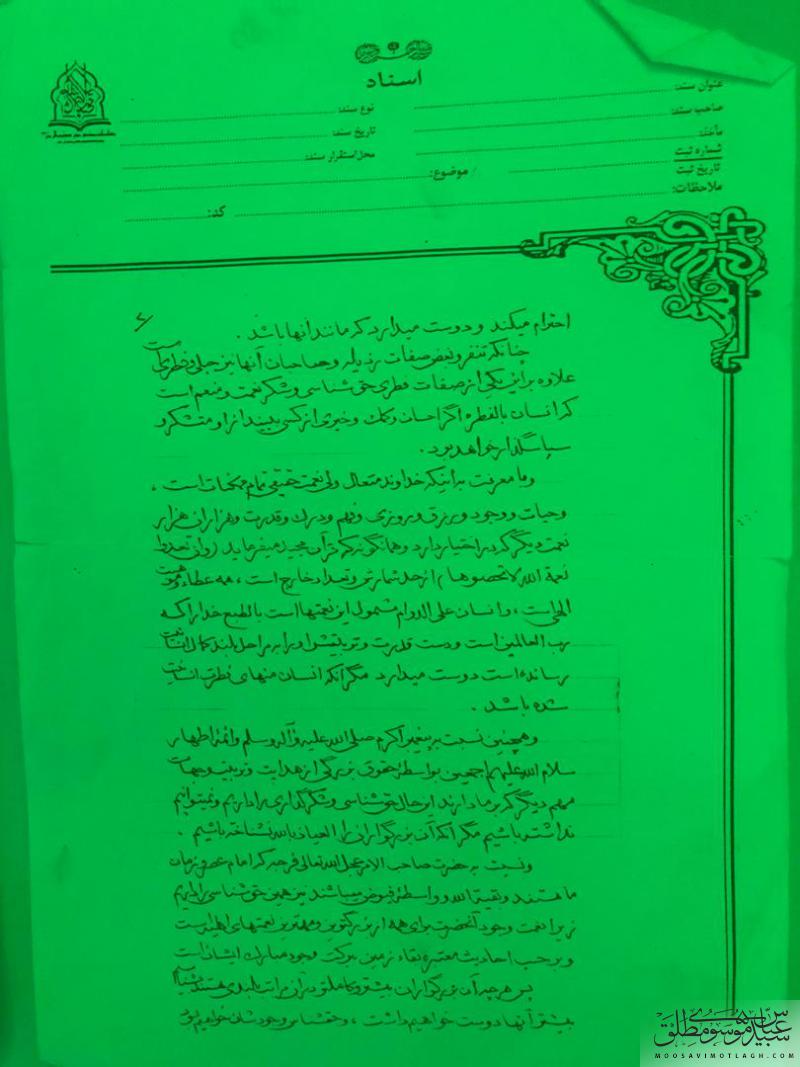 اسناد
عنوان سند:
نوع سند:
صاحب سند:
تاریخ سند:
ماخذ:
محل استقرار سند:
شماره ثبت
تاریخ ثبت
/ موضوع:
ملاحظات:
کد:
احترام میکند و دوست میدارد که مانند آنها باشد.
چنانکه تنفر و بغض صفات رذیله و صاحبان آنها نیز جبلی و فطری است
علاوه بر این یکی از صفات فطری حق شناسی و شکر نعمت و منعم است
که انسان بالفطره اگر احسان و کمک و خیری از کسی ببیند از او متشکر و
سپاسگذار خواهد بود.
و ما معرفت به اینکه خداوند متعال ولی نعمت حقیقی تمام ممکنات است،
و حیات و وجود و رزق و روزی و فهم و درک و قدرت و هزاران هزار
نعمت دیگر که در اختیار دارد و همانگونه که قرآن مجید میفرماید (وان تعدوا
نعمة الله لا تحصوها) از حد شمارش و تعداد خارج است، همه عطاء و موهبت
الهی است، و انسان علی الدوام مشمول این نعمتها است بالطبع خدا را که
رب العالمین است و دست قدرت و تربیتش او را به مراحل بلند کمال انسانیت
رسانده است دوست میدارد مگر آنکه انسان منهای فطرت انسانیت
شده باشد.
و همچنین نسبت به پیغمبر اکرم صلی الله علیه و آله وسلم و ائمه اطهار
سلام الله علیهم اجمعین بواسطه حقوق بزرگی از هدایت و تربیت و جهات
مهم دیگر که بر ما دارند این حال حق شناسی و شکرگذاری را داریم و نمیتوانیم
نداشته باشیم مگر آنکه آن بزرگواران را العیاذ بالله نشناخته باشیم.
و نسبت به حضرت صاحب الامر عجل الله تعالی فرجه که امام عصر و زمان
ما هستند و بقیة الله و واسطه فیوض میباشند نیز همین حق شناسی را داریم
زیرا نعمت وجود آنحضرت برای همه از بزرگترین و مهمترین نعمتهای الهیه است
و بر حسب احادیث معتبره بقاء زمین ببرکت وجود مبارک ایشان است
پس هر چه آن بزرگواران را بیشتر و کاملتر در آن مراتب بلندی که هستند بشناسیم
بیشتر آنها را دوست خواهیم داشت، و حقشناس وجودشان خواهیم بود
سید عباس موسوی مطلق
MOOSAVIMOTLAGH.COM